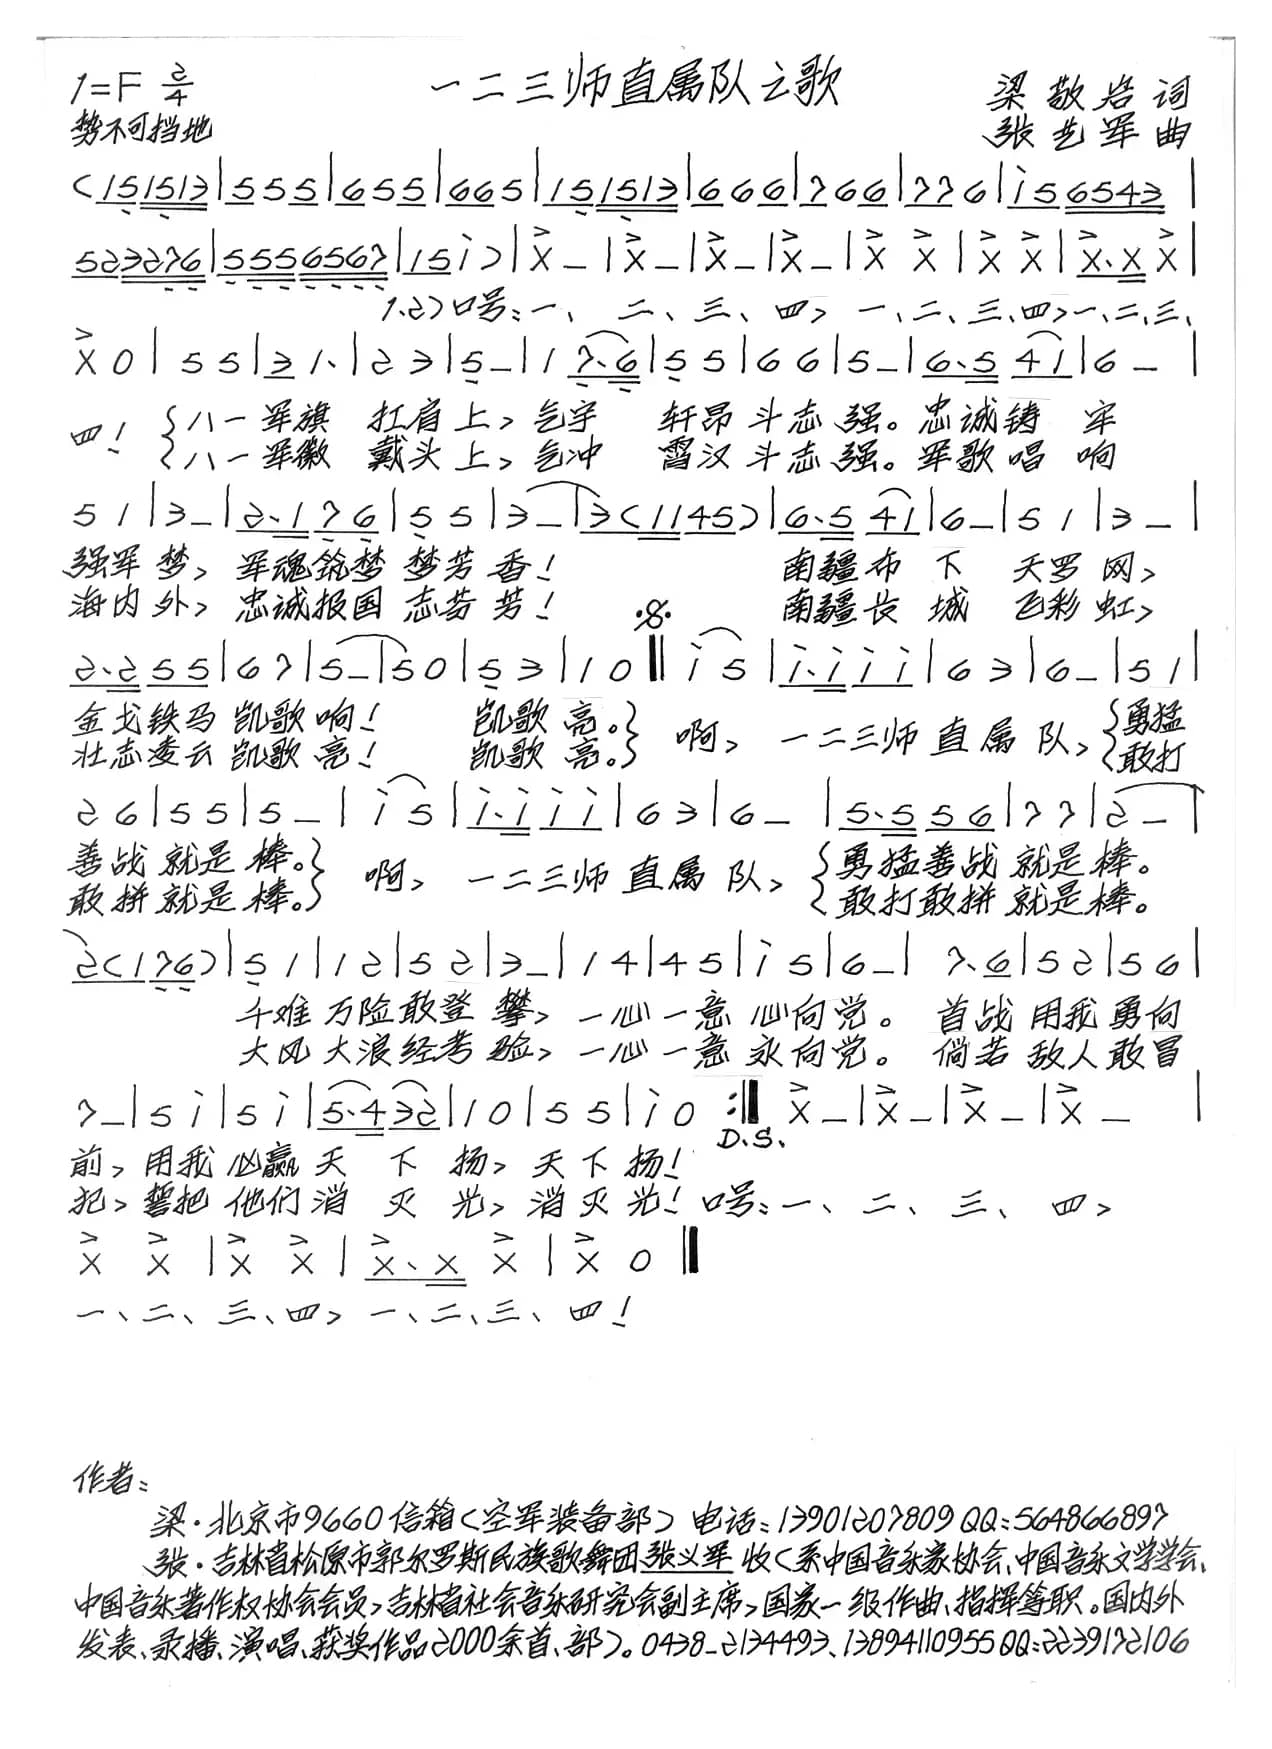 1=F 2/4 一二三师直属队之歌 梁敬岩 词
势不可挡地 张艺军 曲
(151513|555|655|665|151513|666|766|776|i56543|
523276|5556567|15i)|X–|X–|X–|X–|X X|X X|X.X X|
1.2)口号:一、 二、三、四, 一、二、三、四,一、二、三、
X 0|5 5|3 1.|2 3|5–|1 7.6|5 5|6 6|5–|6.5 41|6 –|
四! {八一军旗 扛肩上,气宇 轩昂斗志强。忠诚铸 牢
{八一军徽 戴头上,气冲 霄汉斗志强。军歌唱 响
5 1|3–|2.1 76|5 5|3–|3(1145)|6.5 41|6–|5 1|3 –|
强军梦, 军魂筑梦 梦芳香! 南疆布 下 天罗网,
海内外, 忠诚报国 志芬芳! 南疆长 城 飞彩虹,
2.2 55|6 7|5–|5 0|5 3|1 0‖ i 5|i.i i i|6 3|6–|5 1|
金戈铁马 凯歌响! 凯歌亮。} 啊, 一二三师直属队,{勇猛
壮志凌云 凯歌亮! 凯歌亮。} {敢打
2 6|5 5|5 –|i 5|i.i i i|6 3|6– |5.5 56|7 7|2 –|
善战就是棒。} 啊, 一二三师直属队, {勇猛善战就是棒。
敢拼就是棒。} {敢打敢拼就是棒。
2(176)|5 1|1 2|5 2|3–|1 4|4 5|i 5|6–| 7.6|5 2|5 6|
千难万险敢登攀, 一心一意心向党。 首战用我勇向
大风大浪经考验, 一心一意永向党。 倘若敌人敢冒
7–|5 i|5 i|5.4 32|1 0|5 5|i 0 :‖ X–|X–|X –|X – |
D.S.
前,用我必赢天 下 扬,天下扬!
犯,誓把他们消 灭 光,消灭光! 口号:一、 二、 三、 四,
X X |X X|X.X X|X 0‖
一、二、三、四, 一、二、三、四!
作者:
梁·北京市9660信箱(空军装备部) 电话:13901207809QQ:564866897
张·吉林省松原市郭尔罗斯民族歌舞团张义军 收(系中国音乐家协会、中国音乐文学学会、
中国音乐著作权协会会员,吉林省社会音乐研究会副主席,国家一级作曲、指挥等职。国内外
发表、录播、演唱、获奖作品2000余首、部)。0438-2134493、13894110955QQ:2239172106